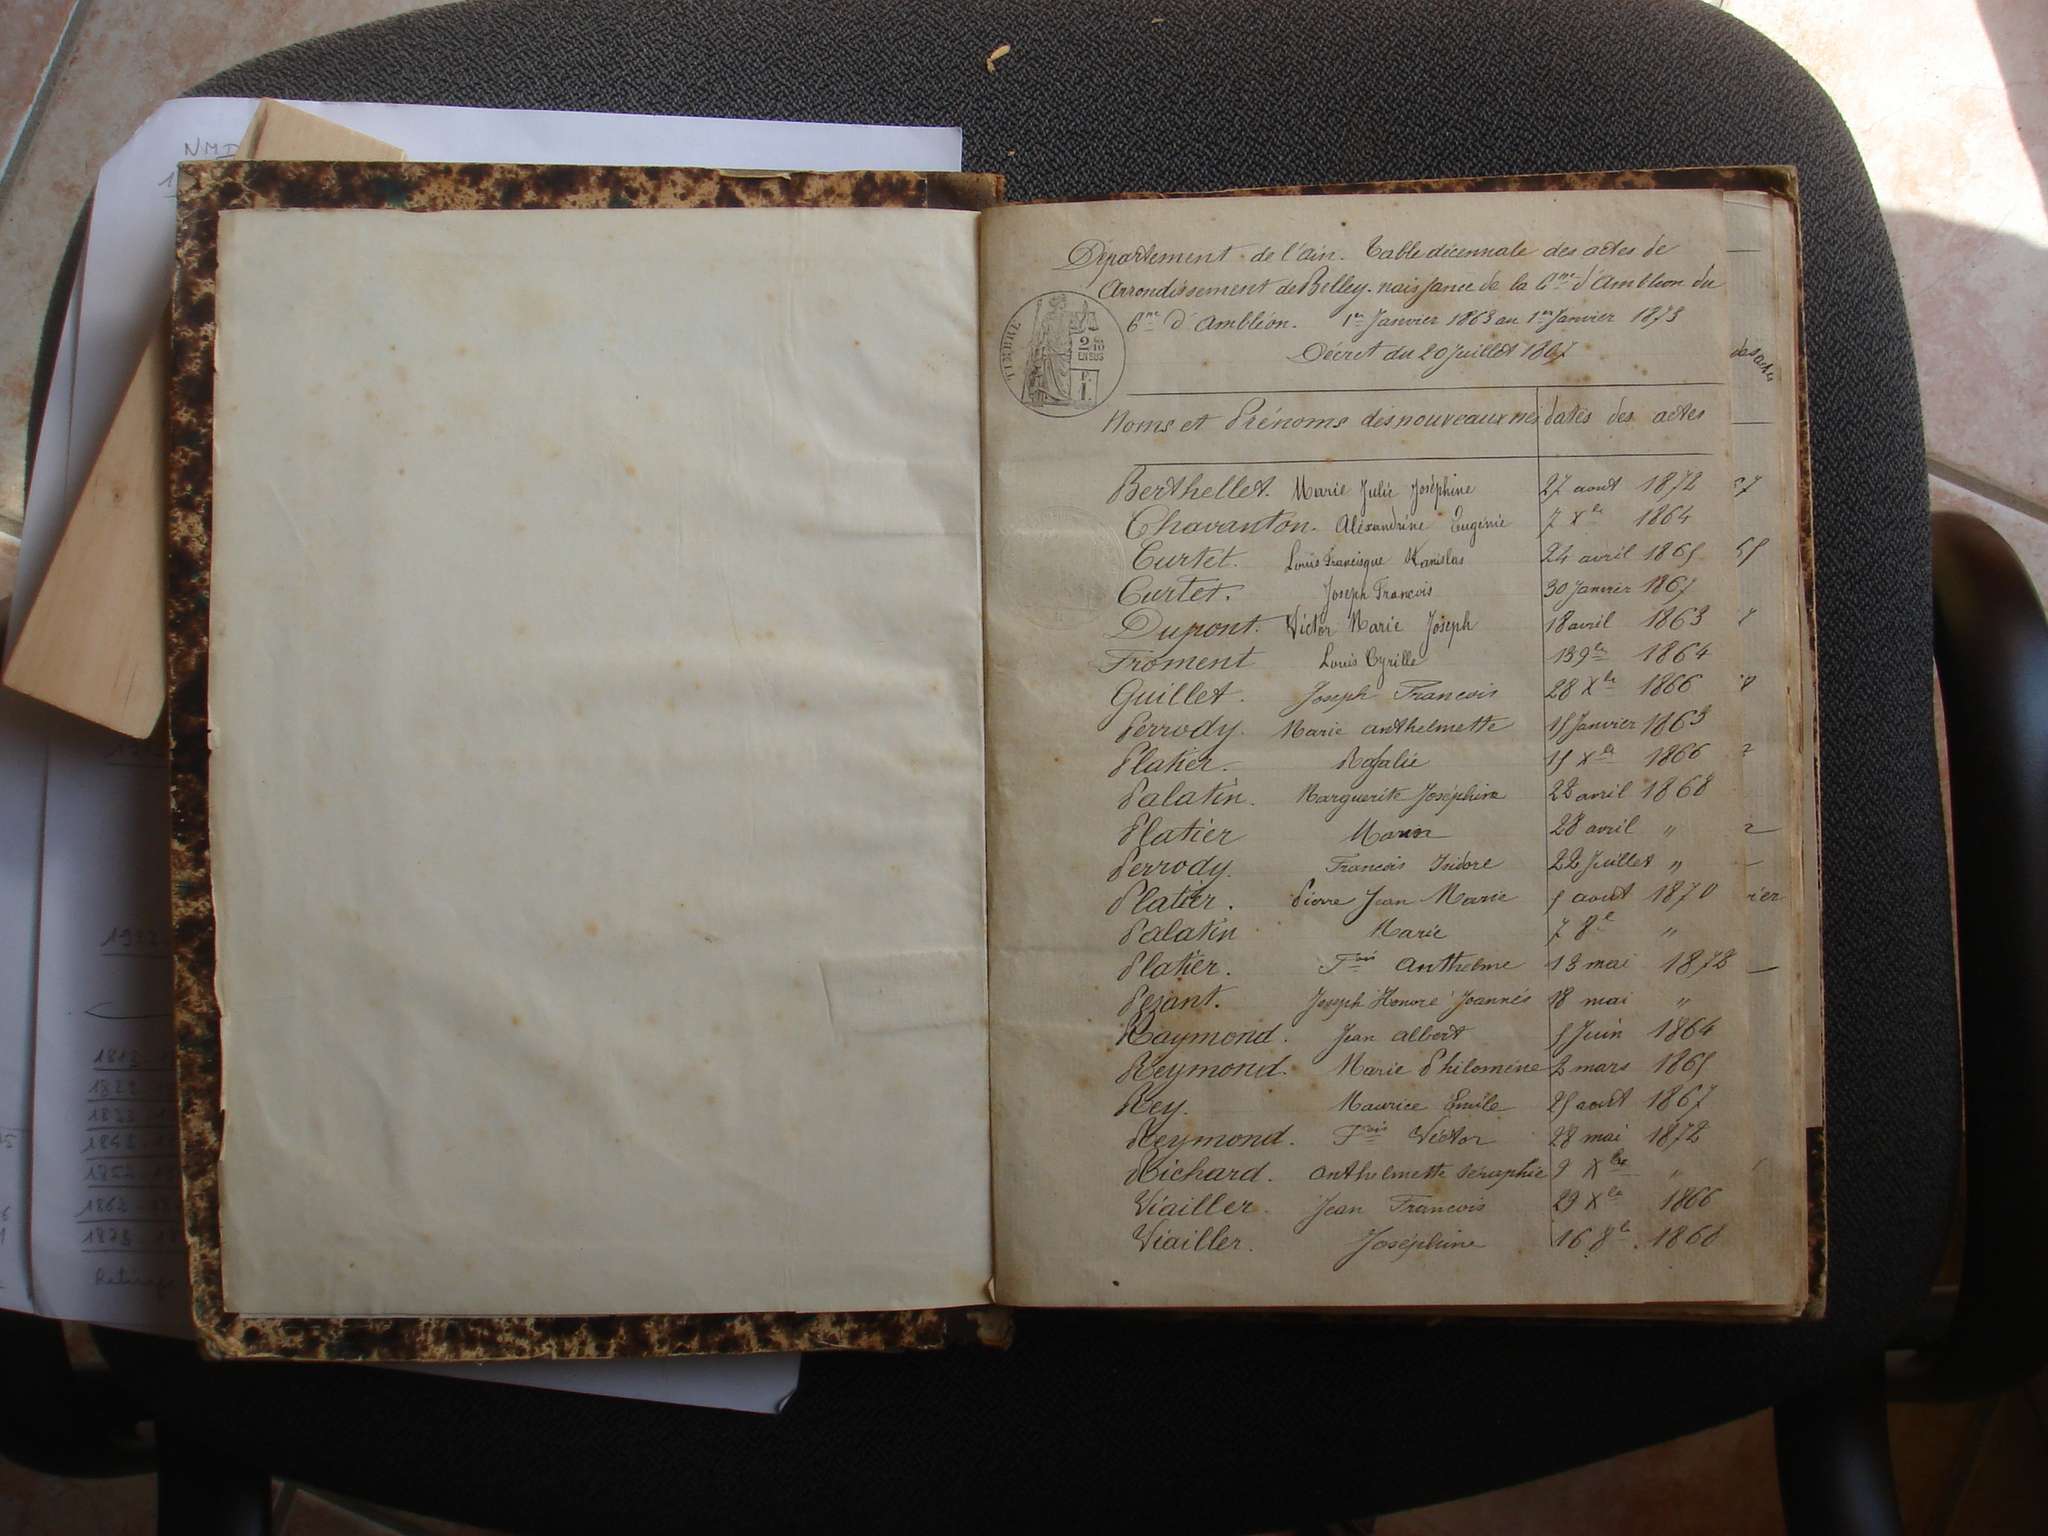 NMD
Département de l'ain. Table décennale des actes de
Arrondissement de Belley. naissance de la Cne d'Ambléon du
Cne d'Ambléon. 1er Janvier 1863 au 1er Janvier 1873
Décret du 20 Juillet 1807
TIMBRE
2/10
EN SUS
F.
1.
des actes
Noms et Prénoms des nouveaux nés dates des actes
Berthellet. Marie Julie Joséphine 27 aout 1872
Chavanton. Aléxandrine Eugénie 7 Xbre 1864
Curtet. Louis Francisque Stanislas 24 avril 1865
Curtet. Joseph Francois 30 Janvier 1867
Dupont. Victor Marie Joseph 18 avril 1863
Froment Louis Cyrille 13 9bre 1864
Guillet. Joseph Francois 28 Xbre 1866
Perrody. Marie anthelmette 15 Janvier 1863
Platier. Rosalie 15 Xbre 1866
Palatin. Marguerite Joséphine 28 avril 1868
Platier Marin 28 avril "
Perrody. Francois Isidore 22 Juillet "
Platier. Pierre Jean Marie 5 aout 1870
Palatin Marie 7 8e "
Platier. Fois Anthelme 13 mai 1872
Pezant. Joseph Honoré Joannés 18 mai "
Raymond. Jean albert 5 Juin 1864
Reymond. Marie Philomène 2 mars 1865
Rey. Maurice Emile 25 aout 1867
Reymond. Fois Victor 28 mai 1872
Richard. anthelmette Séraphie 9 Xbre "
Viailler. Jean Francois 29 Xbre 1866
Viailler. Joséphine 16 8e. 1868